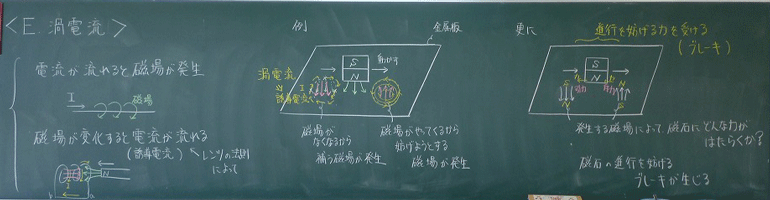 <E. 渦電流>
電流が流れると磁場が発生
I
磁場
磁場が変化すると電流が流れる
(誘導電流)
レンツの法則
によって
N
例
金属板
S
N
動かす
渦電流
誘導電流
I
磁場が
なくなるから
補う磁場が発生
磁場がやってくるから
妨げようとする
磁場が発生
更に
進行を妨げる力を受ける
(ブレーキ)
S
N
N
S
発生する磁場によって磁石にどんな力が
はたらくか?
磁石の進行を妨げる
ブレーキが生じる